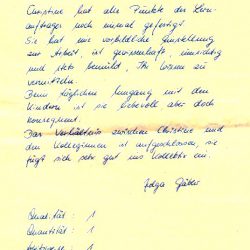 Christine hat alle Punkte des Lern-
auftrages noch einmal gefestigt.
Sie hat eine vorbildliche Einstellung
zur Arbeit, ist gewissenhaft, umsichtig
und stets bemüht, ihr Wissen zu
vermitteln.
Beim täglichen Umgang mit den
Kindern ist sie liebevoll aber doch
konsequent.
Das Verhältnis zwischen Christine und
den Kolleginnen ist aufgeschlossen, sie
fügt sich sehr gut ins Kollektiv ein.
Helga
Qualität : 1
Quantität : 1
: 1